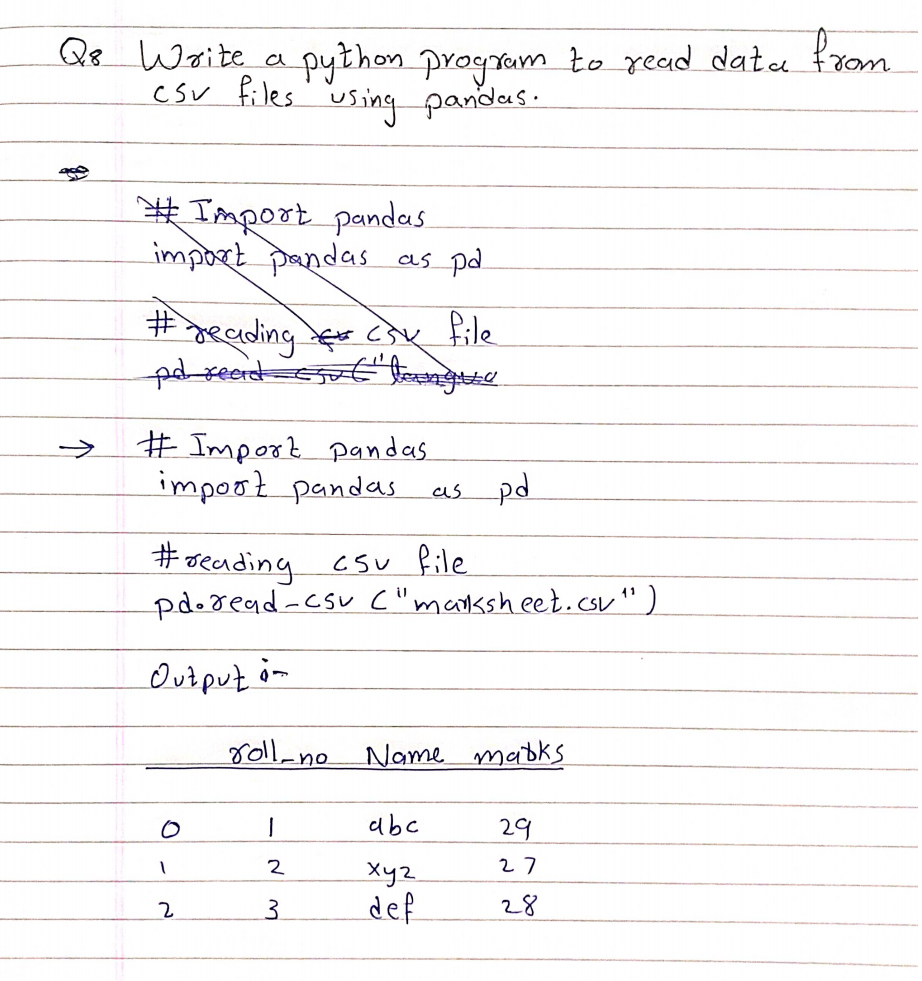 Q8 Write a python program to read data from
csv files using pandas.
# Import pandas
import pandas as pd
# reading csv file
pd read csv ("langua
→ # Import pandas
import pandas as pd
# reading csv file
pd.read-csv ("marksheet.csv")
Output :-
roll_no Name marks
0 1 abc 29
1 2 xyz 27
2 3 def 28